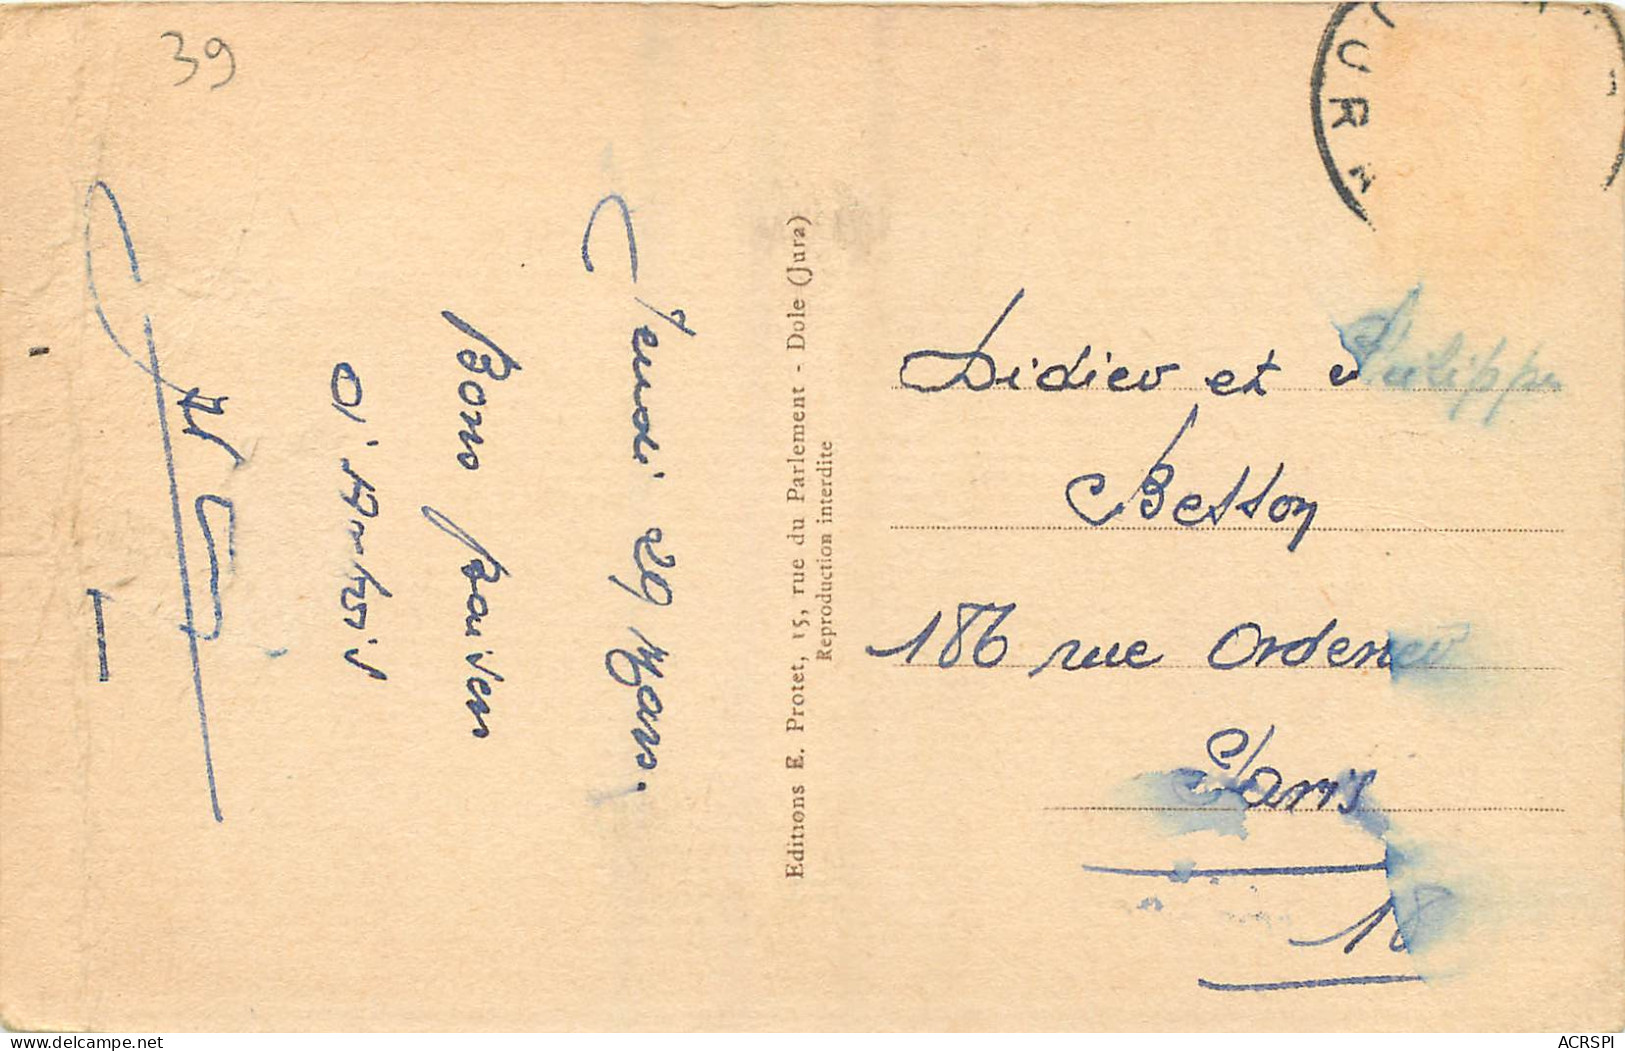 39
JURA
Jeudi 29 Mars.
Bons baisers
d'Arbois
Editions E. Protet, 15, rue du Parlement - Dole (Jura)
Reproduction interdite
Didier et Philippe
Besson
186 rue Ordener
Paris
18
ACRSPI